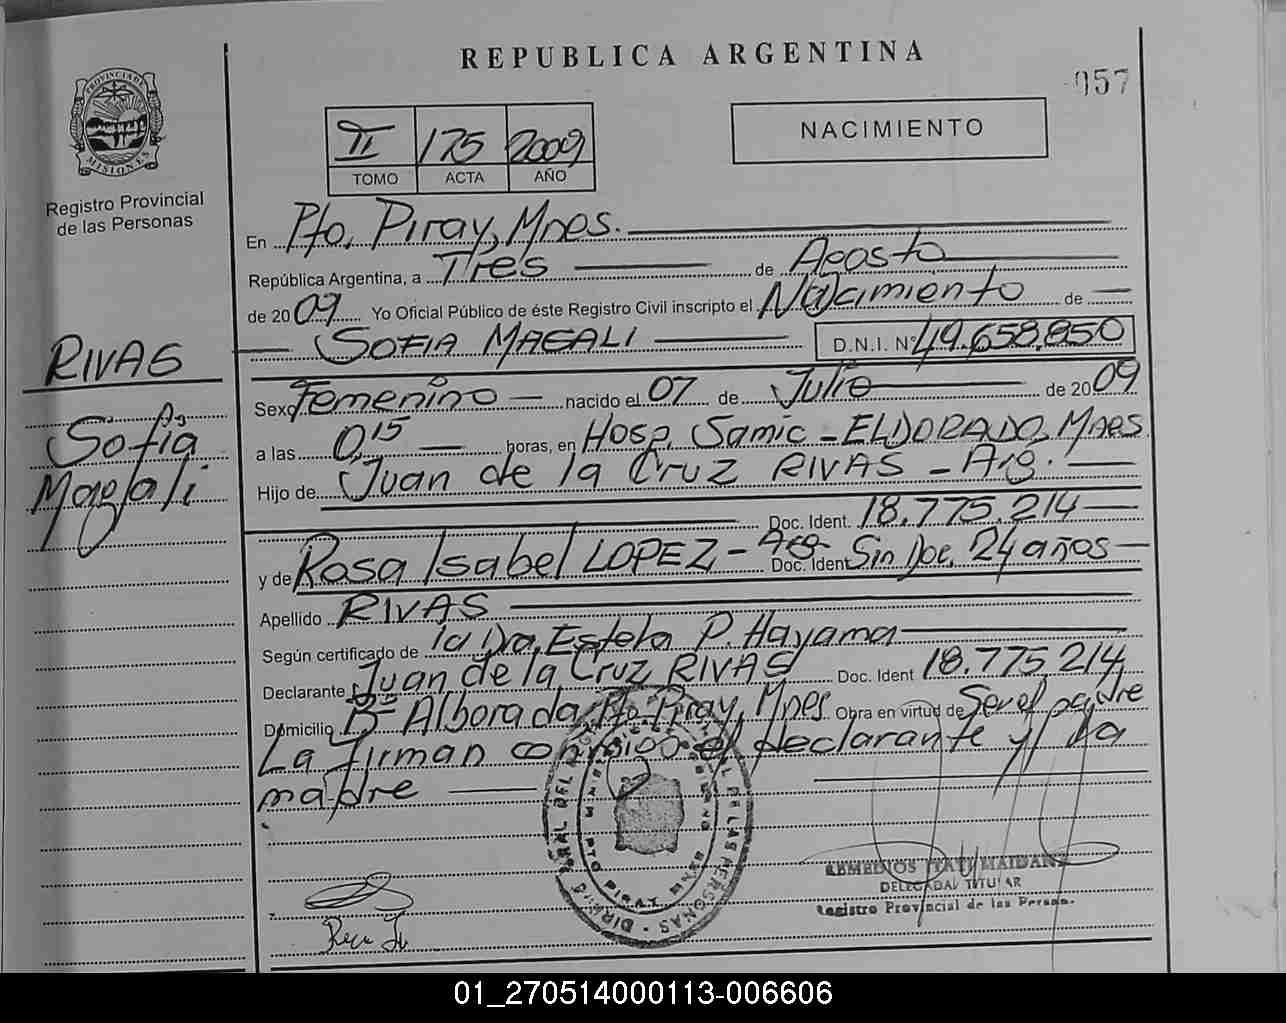 REPUBLICA ARGENTINA
057
PROVINCIA DE
MISIONES
Registro Provincial
de las Personas
II 175 2009
TOMO ACTA AÑO
NACIMIENTO
En Pto, Piray, Mnes.
República Argentina, a Tres de Agosto
de 2009 Yo Oficial Público de éste Registro Civil inscripto el Nacimiento de
SOFIA MAGALI D.N.I. Nº 49.658.850
RIVAS
Sofia
Magali
Sexo Femenino nacido el 07 de Julio de 2009
a las 0,15 horas, en Hosp. Samic - ELDORADO, Mnes
Hijo de Juan de la Cruz RIVAS - Arg.
Doc. Ident. 18.775.214
y de Rosa Isabel LOPEZ - Arg. Doc. Ident Sin Doc, 24 años
Apellido RIVAS
Según certificado de la Dra, Estela P. Hayama
Declarante Juan de la Cruz RIVAS Doc. Ident 18.775.214
Domicilio Bº Alborada, Pto Piray, Mnes. Obra en virtud de Ser el padre
La firman conmigo el declarante y la
madre
DE LAS PERSONAS
PTO PIRAY
REMEDIOS ITATI MAIDANA
DELEGADA TITULAR
Registro Provincial de las Person.
01_270514000113-006606